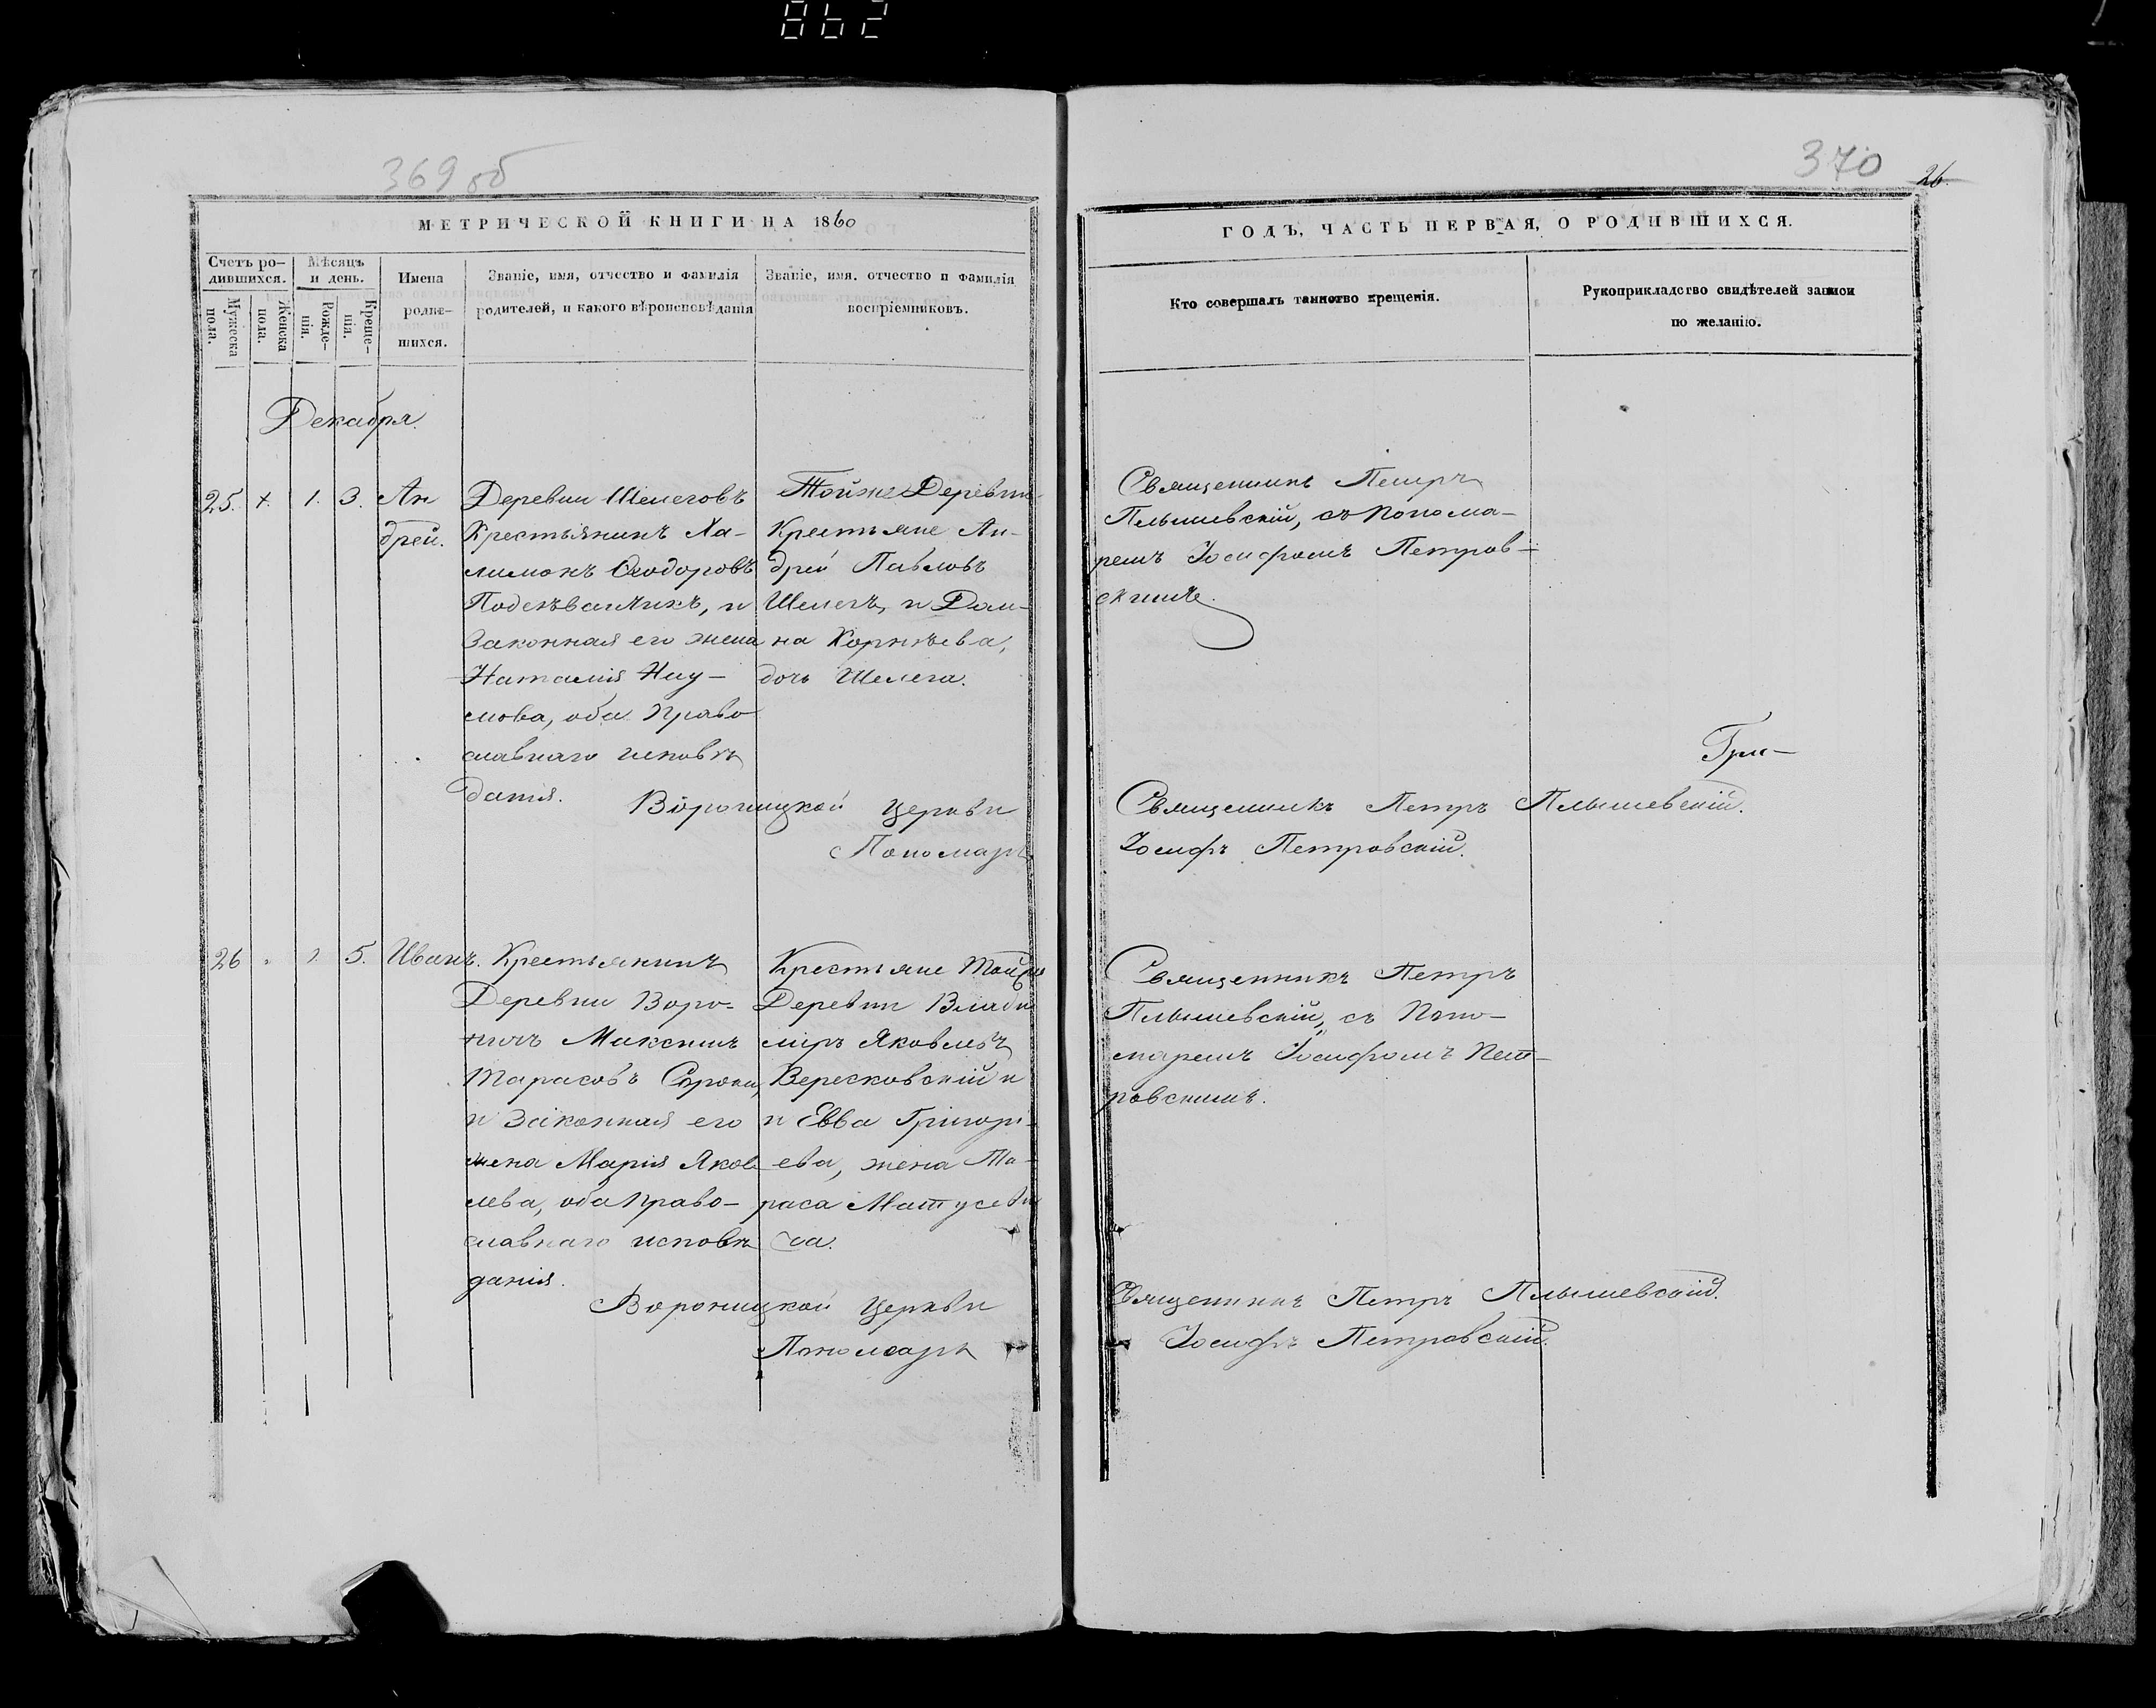 862
369 об
МЕТРИЧЕСКОЙ КНИГИ НА 1860
Счетъ ро-
дившихся.
Мѣсяцъ
и день.
Мужеска
пола.
Женска
пола.
Рожде-
нія.
Креще-
нія.
Имена
родив-
шихся.
Званіе, имя, отчество и фамилія
родителей, и какого вѣроисповѣданія
Званіе, имя, отчество и фамилія
воспріемниковъ.
Декабря.
25. 1. 3.
Ан
дрей.
Деревни Шелеговъ
Крестьянинъ
Ѳеодоровъ
и
Законная его жена
Наталія Нау-
мова, оба право
славнаго исповѣ
данія.
Тойже Деревни
Крестьяне Ан-
дрей Павловъ
Шелегъ, и Дом-
на Корнѣева,
дочь Шелега.
Вороницкой Церкви
Пономарь
26 5.
Иванъ.
Крестьянинъ
Деревни Воро-
ничъ Максимъ
Тарасовъ
и Законная его
жена Марія Яков
лева, оба право-
славнаго исповѣ
данія.
Крестьяне Тойже
Деревни Влади
міръ Яковлевъ
Вересковскій и
и Евва Григорі-
ева, жена Та-
раса Матусеви
ча.
Вороницкой Церкви
Пономарь
370
26.
ГОДЪ, ЧАСТЬ ПЕРВАЯ, О РОДИВШИХСЯ.
Кто совершалъ таинство крещенія.
Рукоприкладство свидѣтелей записи
по желанію.
Священникъ Петръ
Плышевскій, съ Понома-
ремъ Іосифомъ Петров-
скимъ.
Гри-
Священникъ Петръ Плышевскій.
Іосифъ Петровскій.
Священникъ Петръ
Плышевскій, съ Поно-
маремъ Іосифомъ Пет-
ровскимъ.
Священникъ Петръ Плышевскій.
Іосифъ Петровскій.